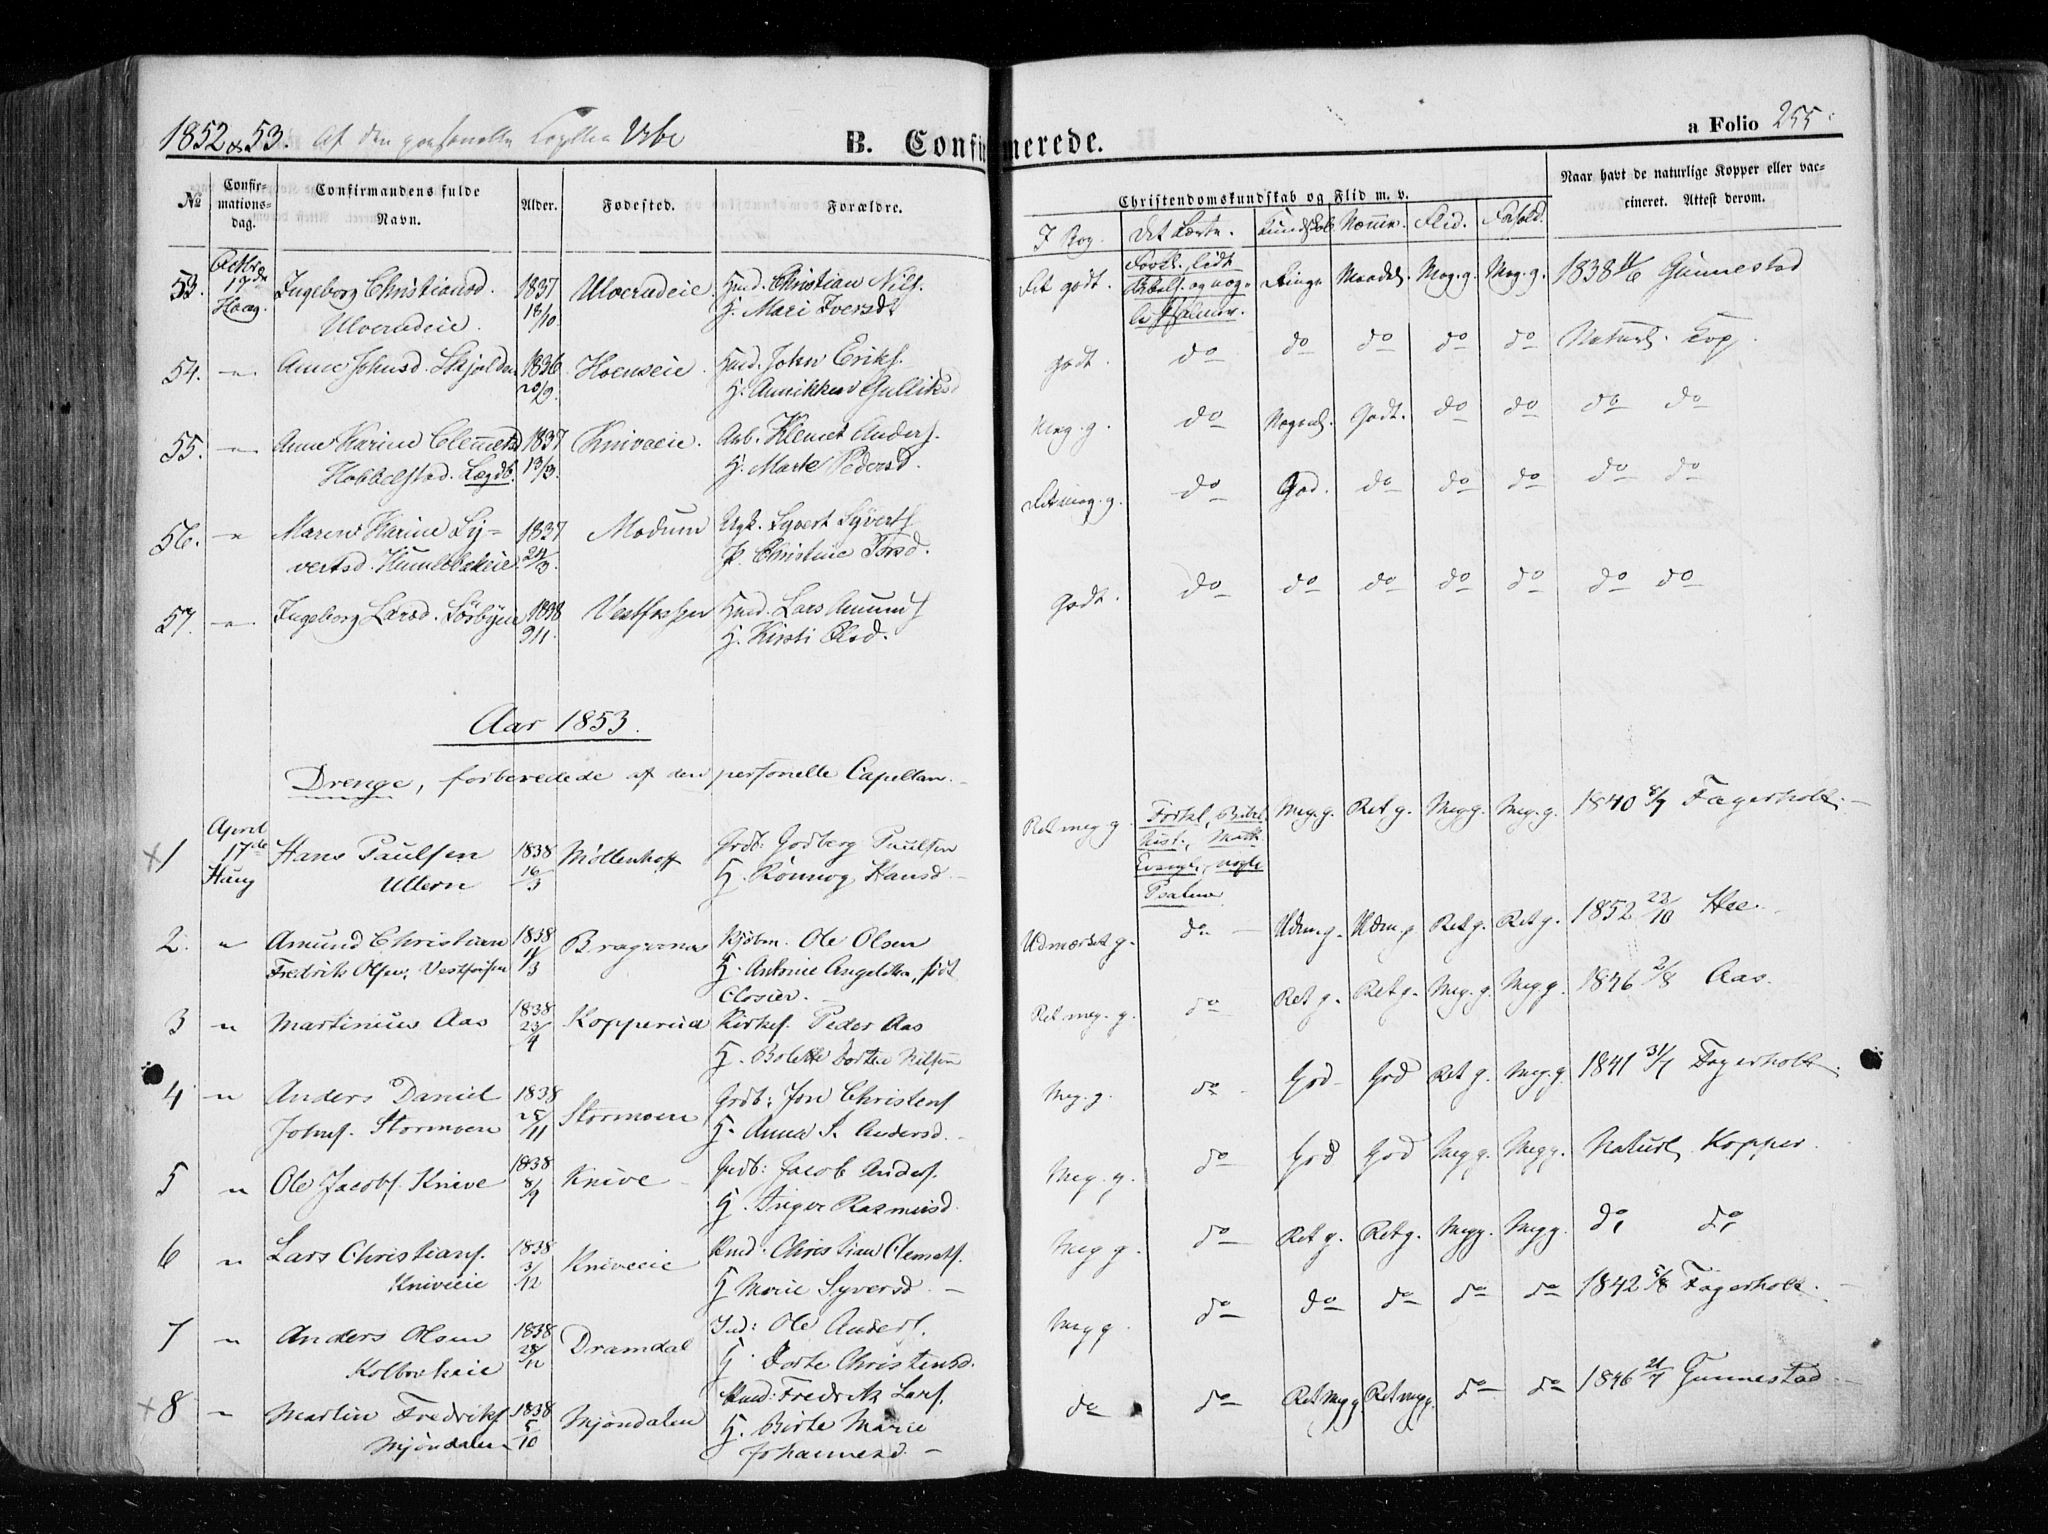 1852 & 53. Af den personelle Capellan
B. Confirmerede.
a Folio 255.
No Confirmationsdag. Confirmandens fulde Navn. Alder. Fødested. Forældre. Christendomskundskab og Flid m. v. Naar havt de naturlige Kopper eller vaccineret. Attest derom.
I Bog. Det Lærte. Kundskab Nemme. Flid. Forhold.
53. Octbr 17de Haag. Ingeborg Christiansd. 1837 18/10 Ulverudeie. Hmd. Christian Nils. Ret godt. Ringe Maadel. Meg. g. Meg. g. 1838 Gunnestad
Ulverudeie. H. Mari Iversdt
54. — Anne Johnsd. 1836 20/9 Hoenseie. Hmd. John Eriks. godt. do do do do do Naturl. Kop.
H. Annikken Gulliksd
55. — Anne Karine Clemetsd 1837 13/3. Kniveeie. Arb. Klemet Anders. Meg. g. do Nogenl. Godt. do do do do
Hobbelstad. Lægdb. H. Marte Pedersd.
56. — Maren Karine Sy- 1837 24/3. Modum Ugk. Syvert Syverts Ret meg. g. do God. do do do do do
vertsd. Humlebækeie. P. Christine Torsd.
57. — Ingeborg Larsd. Sørbyen 1838 9/11. Vestfossen Hmd. Lars Amunds Godt. do do do do do do do
H. Kirsti Olsd.
Aar 1853.
Drenge, forberedede af den personelle Capellan.
1 April 17de Haug Hans Paulsen 1838 16/3 Møllenhof Grdb: Godberg Paulsen Ret meg g. Forkl, Bibel Hist., Mark. Evangl., nogle Psalmer Meg. g. Ret g. Meg g. Meg. g. 1840 8/7 Fagerholt.
Ullern H. Rønnog Hansd.
2. " Amund Christian 1838 11/3 Bragernes Kjøbm. Ole Olsen Udmærket g. do Udm. g. Udm. g Ret g. Ret g. 1852 22/10 Hee.
Fredrik Olsen, Vestfosen H. Antonie Angeletta, født
Closier.
3 " Martinius Aas 1838 23/4 Kopperud Kirkes. Peder Aas Ret meg. g. do Ret g. Ret g. Meg. g. Meg g. 1846 2/8 Aas.
H. Bolette Dortea Nilsen
4 " Anders Daniel 1838 25/11 Stormoen Grdb: Jon Christens Meg. g. do God God Ret g. Meg. g. 1841 31/7 Fagerholt.
Johns. Stormoen H. Anna S. Andersd.
5 " Ole Jacobs. Knive 1838 8/9 Knive Grdb: Jacob Anders. Meg. g. do God God Meg g. Meg g. Naturl Kopper.
H. Inger Rasmusd.
6 " Lars Christians. 1838 3/12 Kniveeie Hmd: Christian Clemets. Meg g. do Ret g. Ret g. Meg g. Meg g. do do
Kniveeie H Marie Syversd.
7 " Anders Olsen 1838 28/12 Dramdal Ind: Ole Anders. Meg g. do do do do do 1842 5/8 Fagerholt.
H. Dorte Christensd.
8 " Martin Fredriks 1838 5/10 Mjøndalen Hmd: Fredrik Lars. do do Ret meg g Ret meg g. do do 1846 21/7 Gunnestad
Mjøndalen H. Birte Marie
Johannesd.